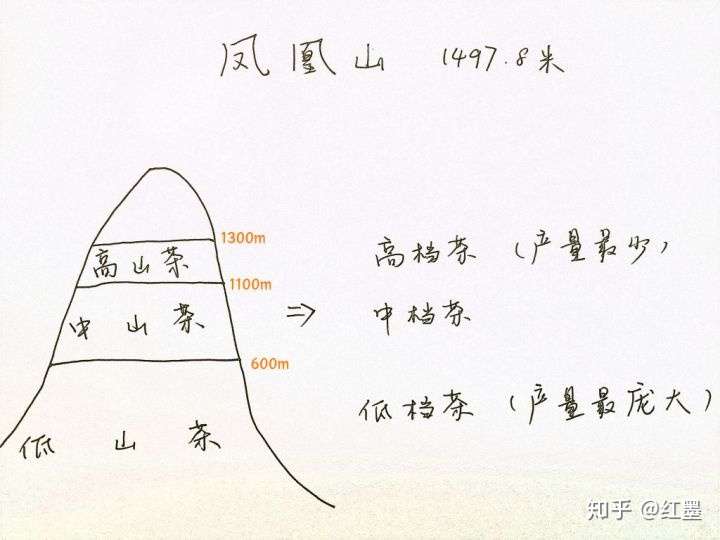 凤凰山 1497.8米
1300m
高山茶
高档茶（产量最少）
1100m
中山茶
⇒ 中档茶
600m
低档茶（产量最庞大）
低山茶
知乎 @红墨